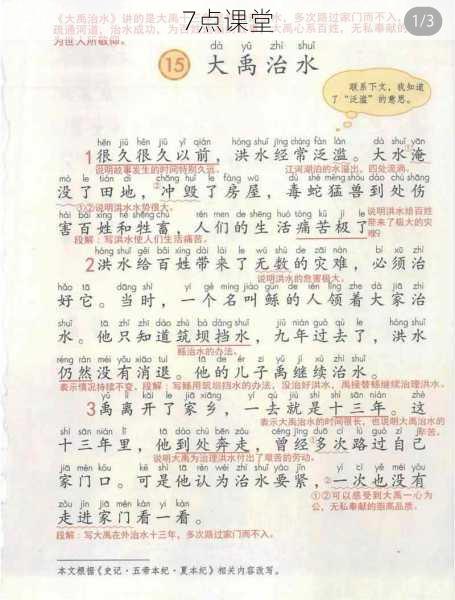 7点课堂
1/3
《大禹治水》讲的是大禹
水，多次路过家门而不入，
疏通河道，治水成功，为
大禹心系百姓，无私奉献的
为世人所敬仰。
dà yǔ zhì shuǐ
15 大禹治水
联系下文，我知道
了“泛滥”的意思。
hěn jiǔ hěn jiǔ yǐ qián hóng shuǐ jīng cháng fàn làn dà shuǐ yān
1很久很久以前，洪水经常泛滥。大水淹
说明故事发生的时间特别久远。 江河湖泊的水溢出，四处流淌。
mò le tián dì chōng huǐ le fáng wū dú shé měng shòu dào chù shāng
没了田地，②冲毁了房屋，毒蛇猛兽到处伤
①②说明洪水水势很大。
hài bǎi xìng hé shēng chù rén men de shēng huó tòng kǔ jí le
害百姓和牲畜，人们的生活痛苦极了
说明洪水给百姓
带来了极大的灾
难?
段解：写洪水使人们生活痛苦。
hóng shuǐ gěi bǎi xìng dài lái le wú shù de zāi nàn bì xū zhì
2洪水给百姓带来了无数的灾难，必须治
说明洪水的危害极大。
hǎo tā dāng shí yí gè míng jiào gǔn de rén lǐng zhe dà jiā zhì
好它。当时，一个名叫鲧的人领着大家治
shuǐ tā zhǐ zhī dào zhù bà dǎng shuǐ jiǔ nián guò qù le hóng shuǐ
水。他只知道筑坝挡水，九年过去了，洪水
鲧治水的办法。
réng rán méi yǒu xiāo tuì tā de ér zi yǔ jì xù zhì shuǐ
仍然没有消退。他的儿子禹继续治水。
表示情况持续不变。段解：写鲧用筑坝挡水的办法，没治好洪水，禹接替鲧继续治理洪水。
yǔ lí kāi le jiā xiāng yí qù jiù shì shí sān nián zhè
3禹离开了家乡，一去就是十三年。这
表示大禹治水的时间很长，也说明大禹治水的
辛苦。
shí sān nián lǐ tā dào chù bēn zǒu céng jīng duō cì lù guò zì jǐ
十三年里，他到处奔走，①曾经多次路过自己
说明大禹为治理洪水付出了艰苦的劳动。
jiā mén kǒu kě shì tā rèn wéi zhì shuǐ yào jǐn yí cì yě méi yǒu
家门口。可是他认为治水要紧，②一次也没有
①②可以感受到大禹一心为
公，无私奉献的崇高品质。
zǒu jìn jiā mén kàn yi kàn
走进家门看一看。
段解：写大禹在外治水十三年，多次路过家门而不入。
本文根据《史记·五帝本纪·夏本纪》相关内容改写。